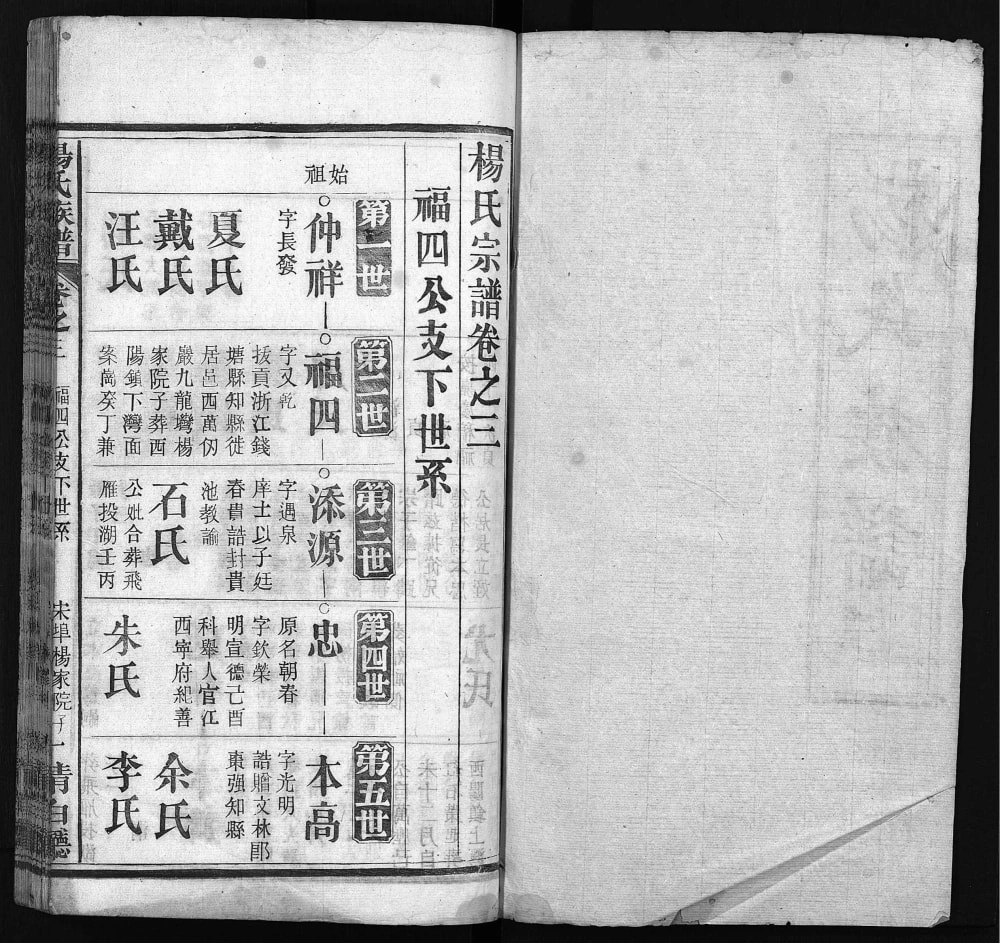 楊氏宗譜卷之三
福四公支下世系
第一世
始祖
仲祥
字長發
夏氏
戴氏
汪氏
第二世
福四
字又乾
拔貢浙江錢
塘縣知縣徙
居邑西萬仭
嚴九龍塆楊
家院子葬西
陽鎖下灣面
粂萵癸丁兼
第三世
添源
字遇泉
庠士以子廷
春貴誥封貴
池教諭
石氏
公妣合葬飛
雁投湖壬丙
第四世
忠
原名朝春
字欽榮
明宣德己酉
科舉人官江
西寧府紀善
朱氏
第五世
本高
字光明
誥贈文林郎
棗强知縣
余氏
李氏
楊氏族譜
卷之三
福四公支下世系
宋埠楊家院子
一
清白